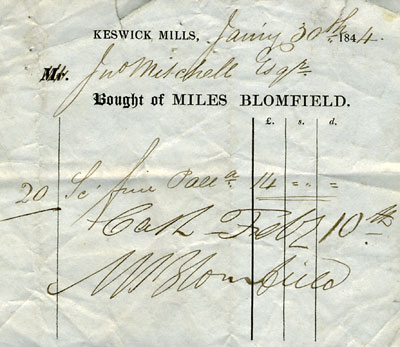 KESWICK MILLS, Janry 30th 1844.
Mr. Jno Mitchell Esqr.
Bought of MILES BLOMFIELD.
£. s. d.
20 Sc: fine 14 = " =
Cash Feb 10th
M Blomfield